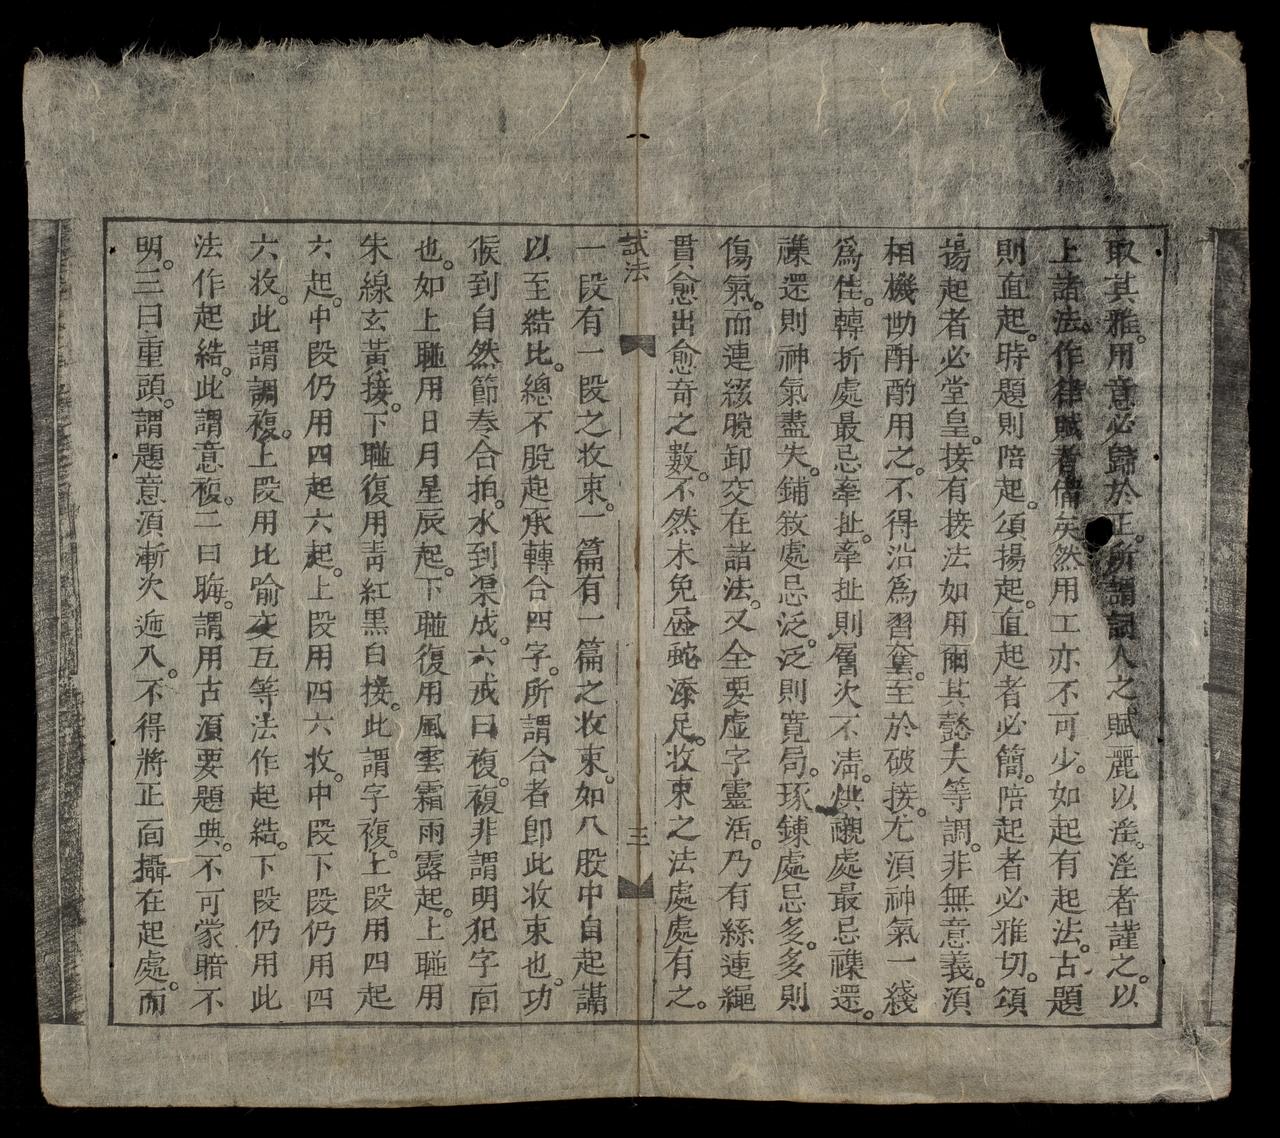 取其雅。用意必歸於正。所謂詞人之賦麗以淫。淫者謹之。以
上諸法。作律賦者備矣。然用工亦不可少。如起有起法。古題
則直起。時題則陪起。頌揚起。直起者必簡。陪起者必雅切。頌
揚起者必堂皇。接有接法。如用爾其懿夫等調。非無意義。須
相機斟酌用之。不得沿爲習套。至於破接。尤須神氣一綫
爲佳。轉折處最忌牽扯。牽扯則層次不淸。烘襯處最忌襍遝。
襍遝則神氣盡失。鋪敘處忌泛。泛則寬局。琢鍊處忌多。多則
傷氣。而連綴脫卸。交在諸法。又全要虛字靈活。乃有絲連繩
貫愈出愈奇之數。不然未免畫蛇添足。收束之法。處處有之。
試法 三
一段有一段之收束。一篇有一篇之收束。如八股中自起講
以至結比。總不脫起承轉合四字。所謂合者。卽此收束也。功
候到自然節奏合拍。水到渠成。六戒曰複。複非謂明犯字面
也。如上聯用日月星辰起。下聯復用風雲霜雨露起。上聯用
朱線玄黃接。下聯復用靑紅黑白接。此謂字複。上段用四起
六起。中段仍用四起六起。上段用四六收。中段下段仍用四
六收。此謂調複。上段用比喻交互等法作起結。下段仍用此
法作起結。此謂意複。二曰晦。謂用古須要題典。不可蒙暗不
明。三曰重頭。謂題意須漸次逓入。不得將正面攝在起處。而